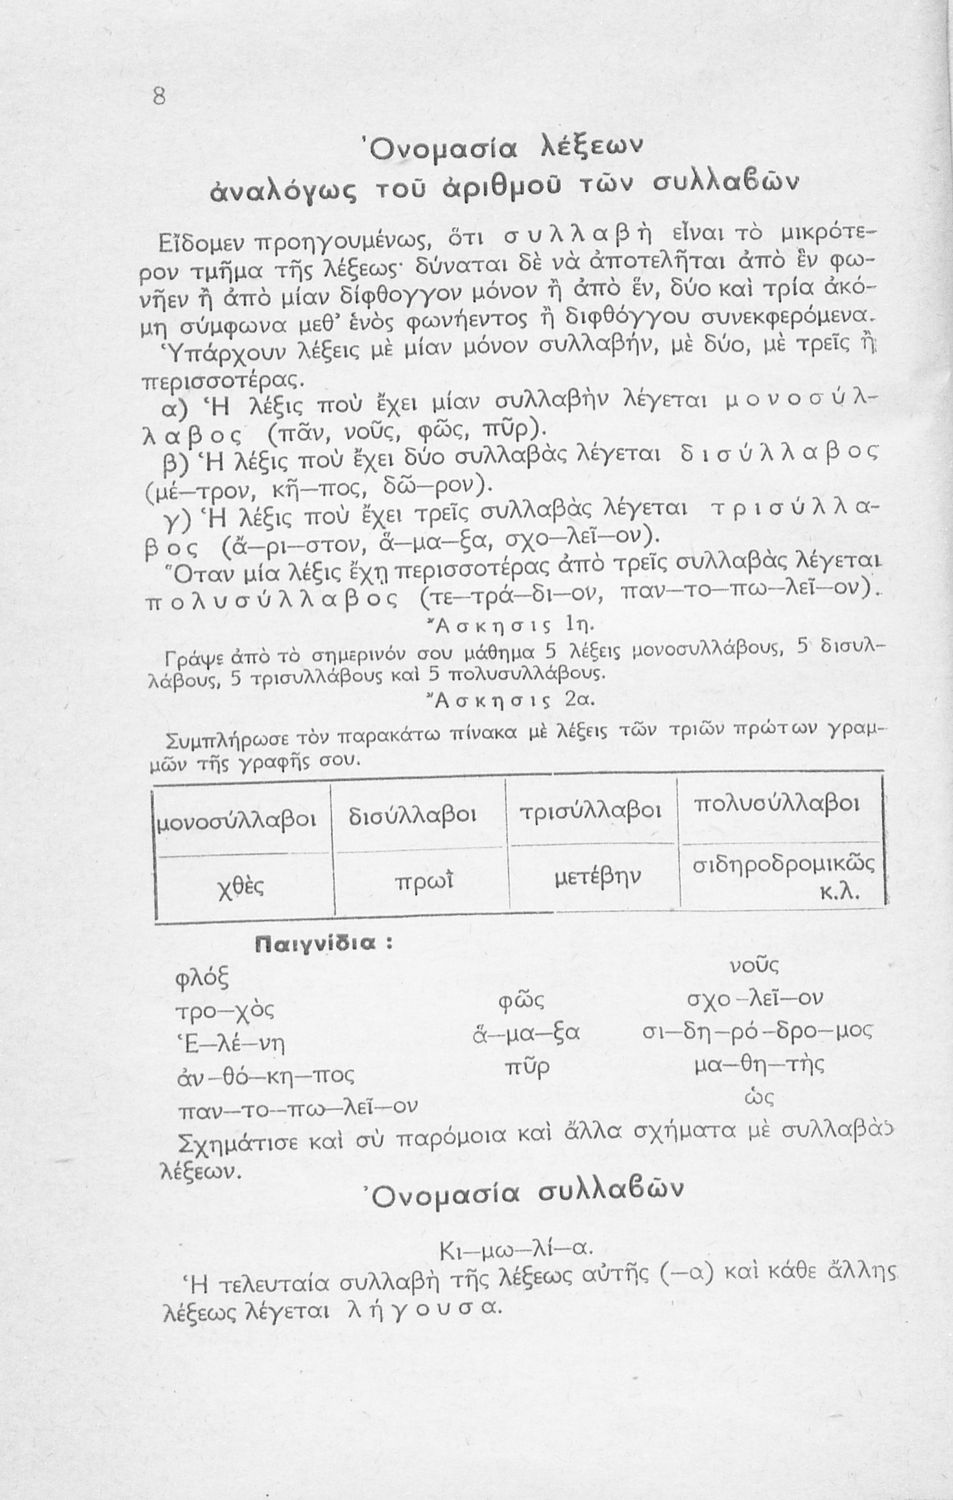 8
Ὀνομασία λέξεων
ἀναλόγως τοῦ ἀριθμοῦ τῶν συλλαβῶν
Εἴδομεν προηγουμένως, ὅτι σ υ λ λ α β ὴ εἶναι τὸ μικρότε-
ρον τμῆμα τῆς λέξεως· δύναται δὲ νὰ ἀποτελῆται ἀπὸ ἓν φω-
νῆεν ἢ ἀπὸ μίαν δίφθογγον μόνον ἢ ἀπὸ ἕν, δύο καὶ τρία ἀκό-
μη σύμφωνα μεθ’ ἑνὸς φωνήεντος ἢ διφθόγγου συνεκφερόμενα.
Ὑπάρχουν λέξεις μὲ μίαν μόνον συλλαβήν, μὲ δύο, μὲ τρεῖς ἢ
περισσοτέρας.
α) Ἡ λέξις ποὺ ἔχει μίαν συλλαβὴν λέγεται μ ο ν ο σ ύ λ-
λ α β ο ς (πᾶν, νοῦς, φῶς, πῦρ).
β) Ἡ λέξις ποὺ ἔχει δύο συλλαβὰς λέγεται δ ι σ ύ λ λ α β ο ς
(μέ—τρον, κῆ—πος, δῶ—ρον).
γ) Ἡ λέξις ποὺ ἔχει τρεῖς συλλαβὰς λέγεται τ ρ ι σ ύ λ λ α-
β ο ς (ἄ—ρι—στον, ἅ—μα—ξα, σχο—λεῖ—ον).
Ὅταν μία λέξις ἔχῃ περισσοτέρας ἀπὸ τρεῖς συλλαβὰς λέγεται
π ο λ υ σ ύ λ λ α β ο ς (τε—τρά—δι—ον, παν—το—πω—λεῖ—ον).
Ἄ σ κ η σ ι ς 1η.
Γράψε ἀπὸ τὸ σημερινόν σου μάθημα 5 λέξεις μονοσυλλάβους, 5 δισυλ-
λάβους, 5 τρισυλλάβους καὶ 5 πολυσυλλάβους.
Ἄ σ κ η σ ι ς 2α.
Συμπλήρωσε τὸν παρακάτω πίνακα μὲ λέξεις τῶν τριῶν πρώτων γραμ-
μῶν τῆς γραφῆς σου.
μονοσύλλαβοι δισύλλαβοι τρισύλλαβοι πολυσύλλαβοι
χθὲς πρωῒ μετέβην σιδηροδρομικῶς
κ.λ.
Παιγνίδια :
φλόξ νοῦς
τρο—χὸς φῶς σχο—λεῖ—ον
Ἑ—λέ—νη ἅ—μα—ξα σι—δη—ρό—δρο—μος
ἀν—θό—κη—πος πῦρ μα—θη—τὴς
παν—το—πω—λεῖ—ον ὡς
Σχημάτισε καὶ σὺ παρόμοια καὶ ἄλλα σχήματα μὲ συλλαβὰς
λέξεων.
Ὀνομασία συλλαβῶν
Κι—μω—λί—α.
Ἡ τελευταία συλλαβὴ τῆς λέξεως αὐτῆς (—α) καὶ κάθε ἄλλης
λέξεως λέγεται λ ή γ ο υ σ α.